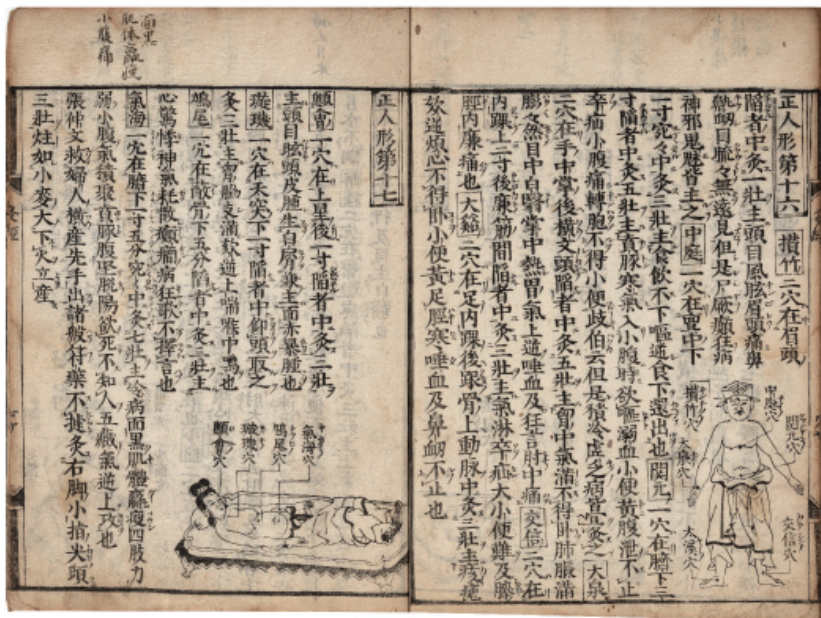 正人形第十六　攢竹　二穴在眉頭
陷者中灸一壯主頭目風眩眉頭痛鼻
鼽衄目䀮々無遠見但是尸厥癲狂病
神邪鬼魅皆主之　中庭　一穴在亶中下
一寸六分陷者中灸三壯主食飲不下嘔逆食下還出也　関元　一穴在臍下三
寸陷者中灸五壯主賁豚寒氣入小腹時欲嘔溺血小便黄腹泄不止
卒疝小腹痛轉胞不得小便歧伯云但是積冷虚乏病皆宜灸之　大泉
二穴在手中掌後橫文頭陷者中灸五壯主胷中氣滿不得卧肺脹滿
膨々然目中白翳掌中熱胃氣上逆唾血及狂言肘中痛　交信　二穴在
内踝上二寸後廉筋間陷者中灸三壯主氣淋卒疝大小便難及膝
脛内廉痛也　大谿　二穴在足内踝後跟骨上動脉中灸三壯主痎瘧
欬逆煩心不得卧小便黄足脛寒唾血及鼻衄不止也
中庭穴
関元穴
攢竹穴
大泉穴
大溪穴
交信穴
正人形第十七
顖會　一穴在上星後一寸陷者中灸三壯
主頭目眩頭皮腫生白屑兼主面赤暴腫也
璇璣　一穴在天突下一寸陷者中仰頭取之
灸三壯主胷脇支滿欬逆上喘喉中鳴也
鳩尾　一穴在蔽骨下五分陷者中灸三壯主
心驚悸神氣耗散癲癇病狂歌不擇言也
氣海　一穴在臍下一寸五分宛々中灸七壯主冷病面黒肌體羸瘦四肢力
弱小腹氣積聚賁豚腹堅脱陽欲死不知人五臟氣逆上攻也
張仲文救婦人橫産先手出諸般符藥不捷灸右脚小指尖頭
三壯炷如小麥大下火立産
顖會穴
璇璣穴
鳩尾穴
氣海穴
面黒
肌体羸痩
小腹痛